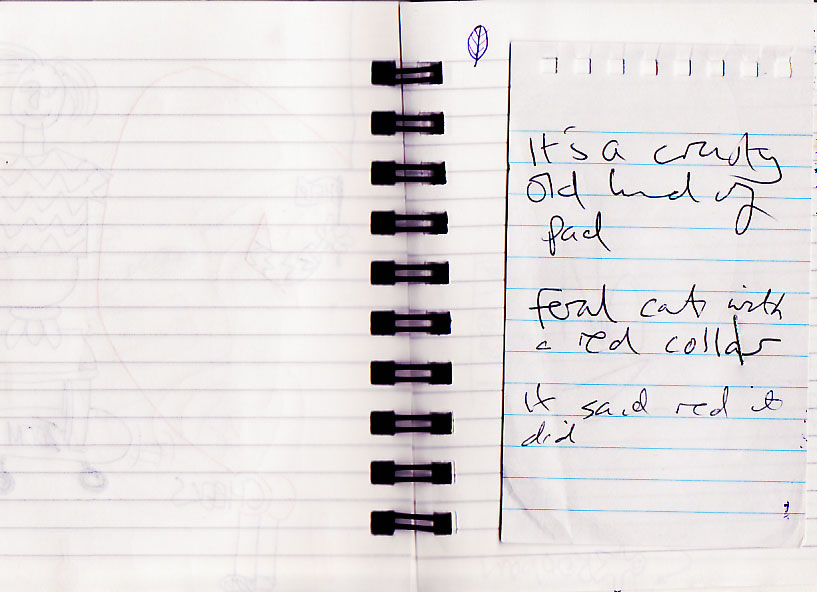 It's a crusty
old kind of
pad
feral cats with
a red collar
it said red it
did